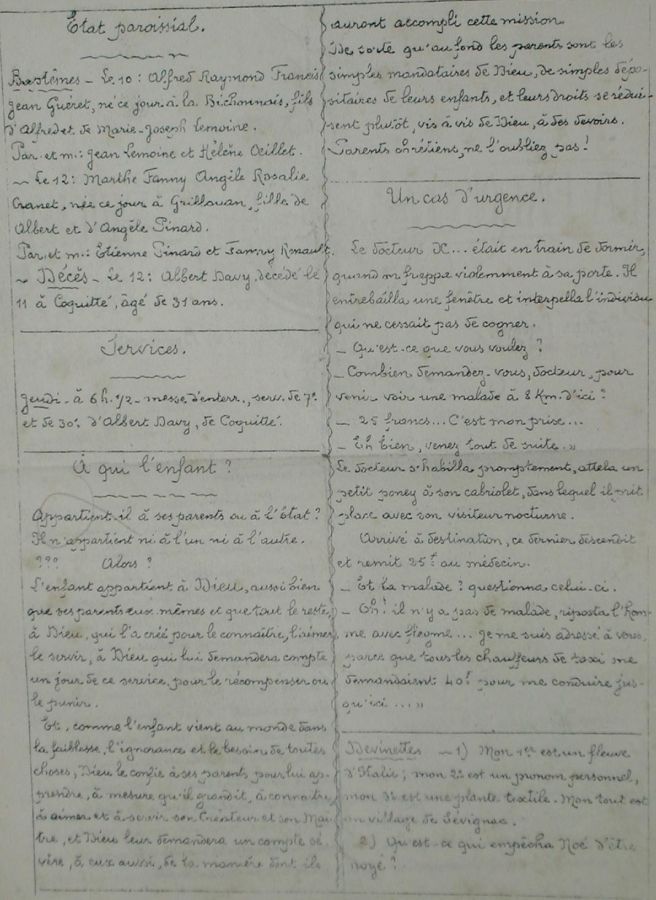 État paroissial.
Baptêmes - Le 10 : Alfred Raymond Francis
Jean Guéret, né ce jour à la Bichonnais, fils
d'Alfred et de Marie-Joseph Lemoine.
Par. et m. : Jean Lemoine et Hélène Oeillet.
~ Le 12 : Marthe Fanny Angèle Rosalie
née ce jour à fille de
Albert et d'Angèle Pinard.
Par. et m. : Etienne Pinard et Fanny Renault.
~ Décès - Le 12 : Albert Davy, décédé le
11 à Coquitté, âgé de 31 ans.
Services.
Jeudi - à 6 h. 1/2 - messe d'enterr., serv. de 7e
et de 30e d'Albert Davy, de Coquitté.
À qui l'enfant ?
Appartient-il à ses parents ou à l'État ?
Il n'appartient ni à l'un ni à l'autre.
??? Alors ?
L'enfant appartient à Dieu, aussi bien
que ses parents eux-mêmes et que tout le reste,
à Dieu, qui l'a créé pour le connaître, l'aimer,
le servir, à Dieu qui lui demandera compte
un jour de ce service, pour le récompenser ou
le punir.
Et, comme l'enfant vient au monde dans
la faiblesse, l'ignorance et le besoin de toutes
choses, Dieu le confie à ses parents pour lui ap-
prendre, à mesure qu'il grandit, à connaître,
à aimer et à servir son Créateur et son Maî-
tre, et Dieu leur demandera un compte sé-
vère, à eux aussi, de la manière dont ils
auront accompli cette mission.
De sorte qu'au fond les parents sont les
simples mandataires de Dieu, de simples dépo-
sitaires de leurs enfants, et leurs droits se rédui-
sent plutôt, vis à vis de Dieu, à des devoirs.
Parents chrétiens, ne l'oubliez pas !
Un cas d'urgence.
Le docteur X... était en train de dormir,
quand on frappa violemment à sa porte. Il
entrebailla une fenêtre et interpella l'individu
qui ne cessait pas de cogner.
- Qu'est-ce que vous voulez ?
- Combien demandez-vous, docteur, pour
venir voir une malade à 8 Km. d'ici ?
- 25 francs... C'est mon prix...
- Eh bien, venez tout de suite. »
Le docteur s'habilla promptement, attela un
petit poney à son cabriolet, dans lequel il prit
place avec son visiteur nocturne.
Arrivé à destination, ce dernier descendit
et remit 25f au médecin.
- Et la malade ? questionna celui-ci.
- Oh ! il n'y a pas de malade, riposta l'hom-
me avec flegme... Je me suis adressé à vous,
parce que tous les chauffeurs de taxi me
demandaient 40f pour me conduire jus-
qu'ici... »
Devinettes ~ 1) Mon 1er est un fleuve
d'Italie ; mon 2e est un pronom personnel,
mon 3e est une plante textile. Mon tout est
un village de Sévignac.
2) Qu'est-ce qui empêcha Noé d'être
noyé ?